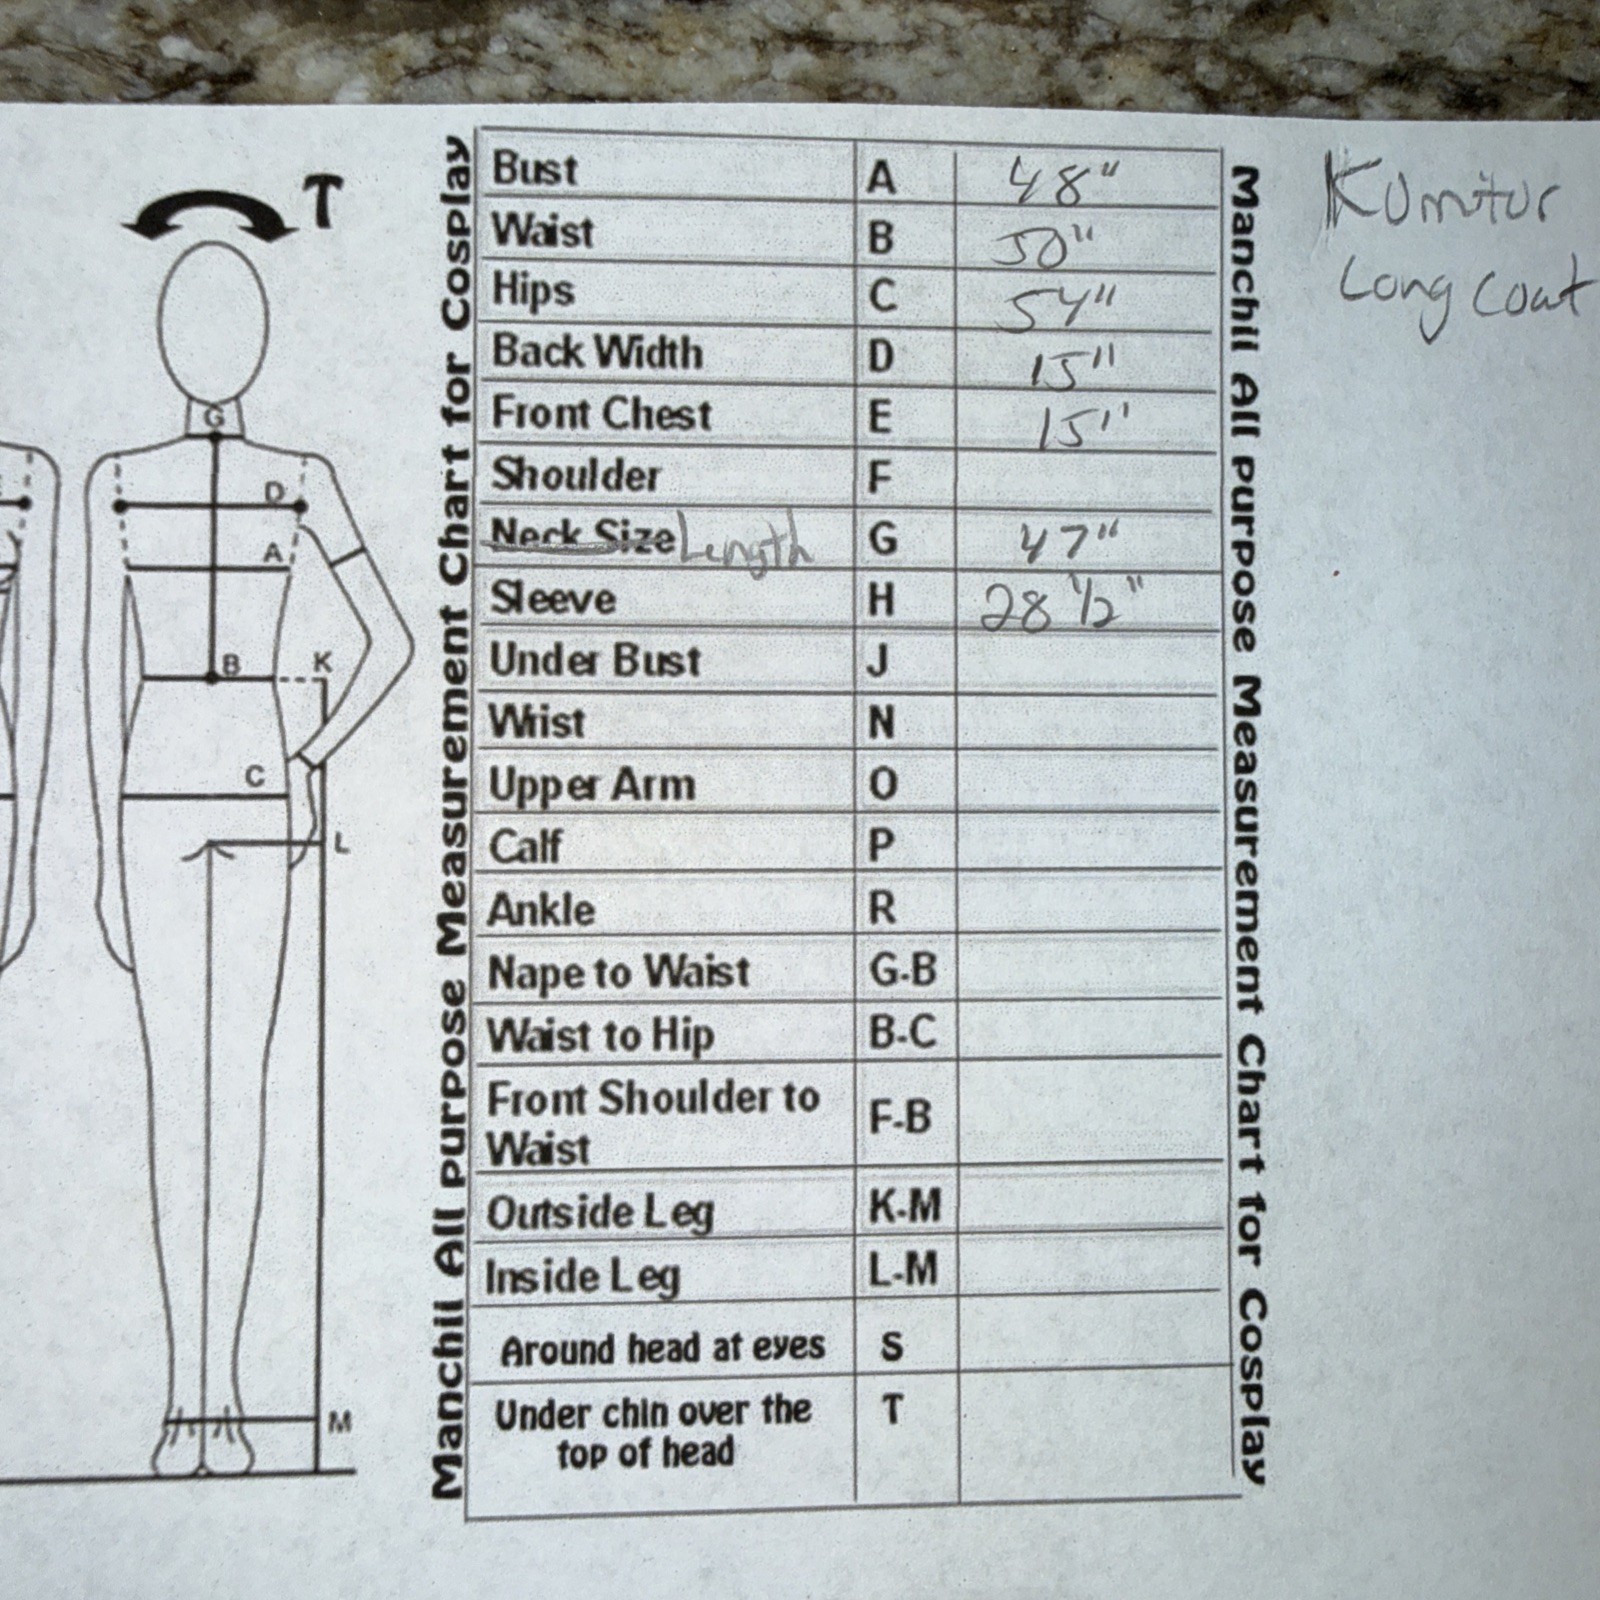 T
G
D
A
B
K
C
L
M
Manchil All purpose Measurement Chart for Cosplay
Bust A 48"
Waist B 50"
Hips C 54"
Back Width D 15"
Front Chest E 15"
Shoulder F
Neck Size Length G 47"
Sleeve H 28 1/2"
Under Bust J
Wrist N
Upper Arm O
Calf P
Ankle R
Nape to Waist G-B
Waist to Hip B-C
Front Shoulder to
Waist F-B
Outside Leg K-M
Inside Leg L-M
Around head at eyes S
Under chin over the T
top of head
Manchil All purpose Measurement Chart for Cosplay
Long Coat